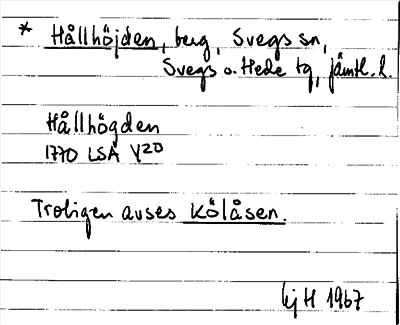 * Hållhöjden, berg, Svegs sn,
Svegs o. Hede tg, jämtl. l.
Hållhögden
1770 LSA Y20
Troligen avses Kölåsen.
ej H 1967